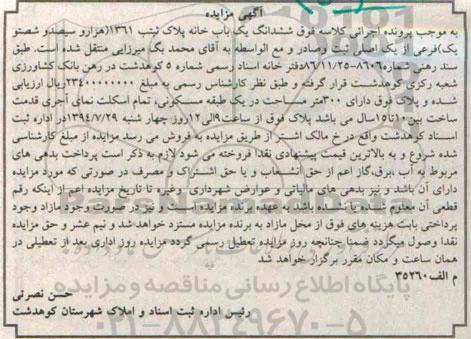 آگهی مزایده
به موجب پرونده اجرائی کلاسه فوق ششدانگ یک باب خانه پلاک ثبتی ۱۳۶۱(هزارو سیصدو شصتو
یک)فرعی از یک اصلی ثبت وصادر و مع الواسطه به آقای محمد بگ میرزایی منتقل شده است. طبق
سند رهنی شماره۸۶۰۶-۸۶/۱۱/۲۵دفتر خانه اسناد رسمی شماره ۵ کوهدشت در رهن بانک کشاورزی
شعبه رکزی کوهدشت قرار گرفته و طبق نظر کارشناس رسمی به مبلغ ۲۳۴۰۰۰۰۰۰۰ریال ارزیابی
شده و پلاک فوق دارای ۳۰۰متر مساحت در یک طبقه مسکونی، تمام اسکلت نمای آجری قدمت
ساخت بین۱۰تا۱۵سال می باشد پلاک فوق از ساعت۹الی۱۲روز چهار شنبه ۱۳۹۴/۷/۲۹در اداره ثبت
اسناد کوهدشت واقع در خ مالک اشتر از طریق مزایده به فروش می رسد مزایده از مبلغ کارشناسی
شده شروع و به بالاترین قیمت پیشنهادی نقدا فروخته می شود لازم به ذکر است پرداخت بدهی های
مربوط به آب ،برق،گاز اعم از حق انشعاب و یا حق اشتراک و مصرف در صورتی که مورد مزایده
دارای آن باشد و نیز بدهی های مالیاتی و عوارض شهرداری وغیره تا تاریخ مزایده اعم از اینکه رقم
قطعی آن معلوم شده یا نشده باشد به عهده برنده مزایده است و نیز در صورت وجود مازاد وجوه
پرداختی بابت هزینه های فوق از محل مازاد به برنده مزایده مسترد خواهد شد و نیم عشر و حق مزایده
نقدا وصول میگردد ضمنا چنانچه روز مزایده تعطیل رسمی گردد مزایده روز اداری بعد از تعطیلی در
همان ساعت و مکان مقرر برگزار خواهد شد
م الف۳۵۲۶۰
حسن نصرتی
رئیس اداره ثبت اسناد و املاک شهرستان کوهدشت
ParsNamadData
پایگاه اطلاع رسانی مناقصه و مزایده
۰۲۱-۸۸۳۴۹۶۷۰-۵